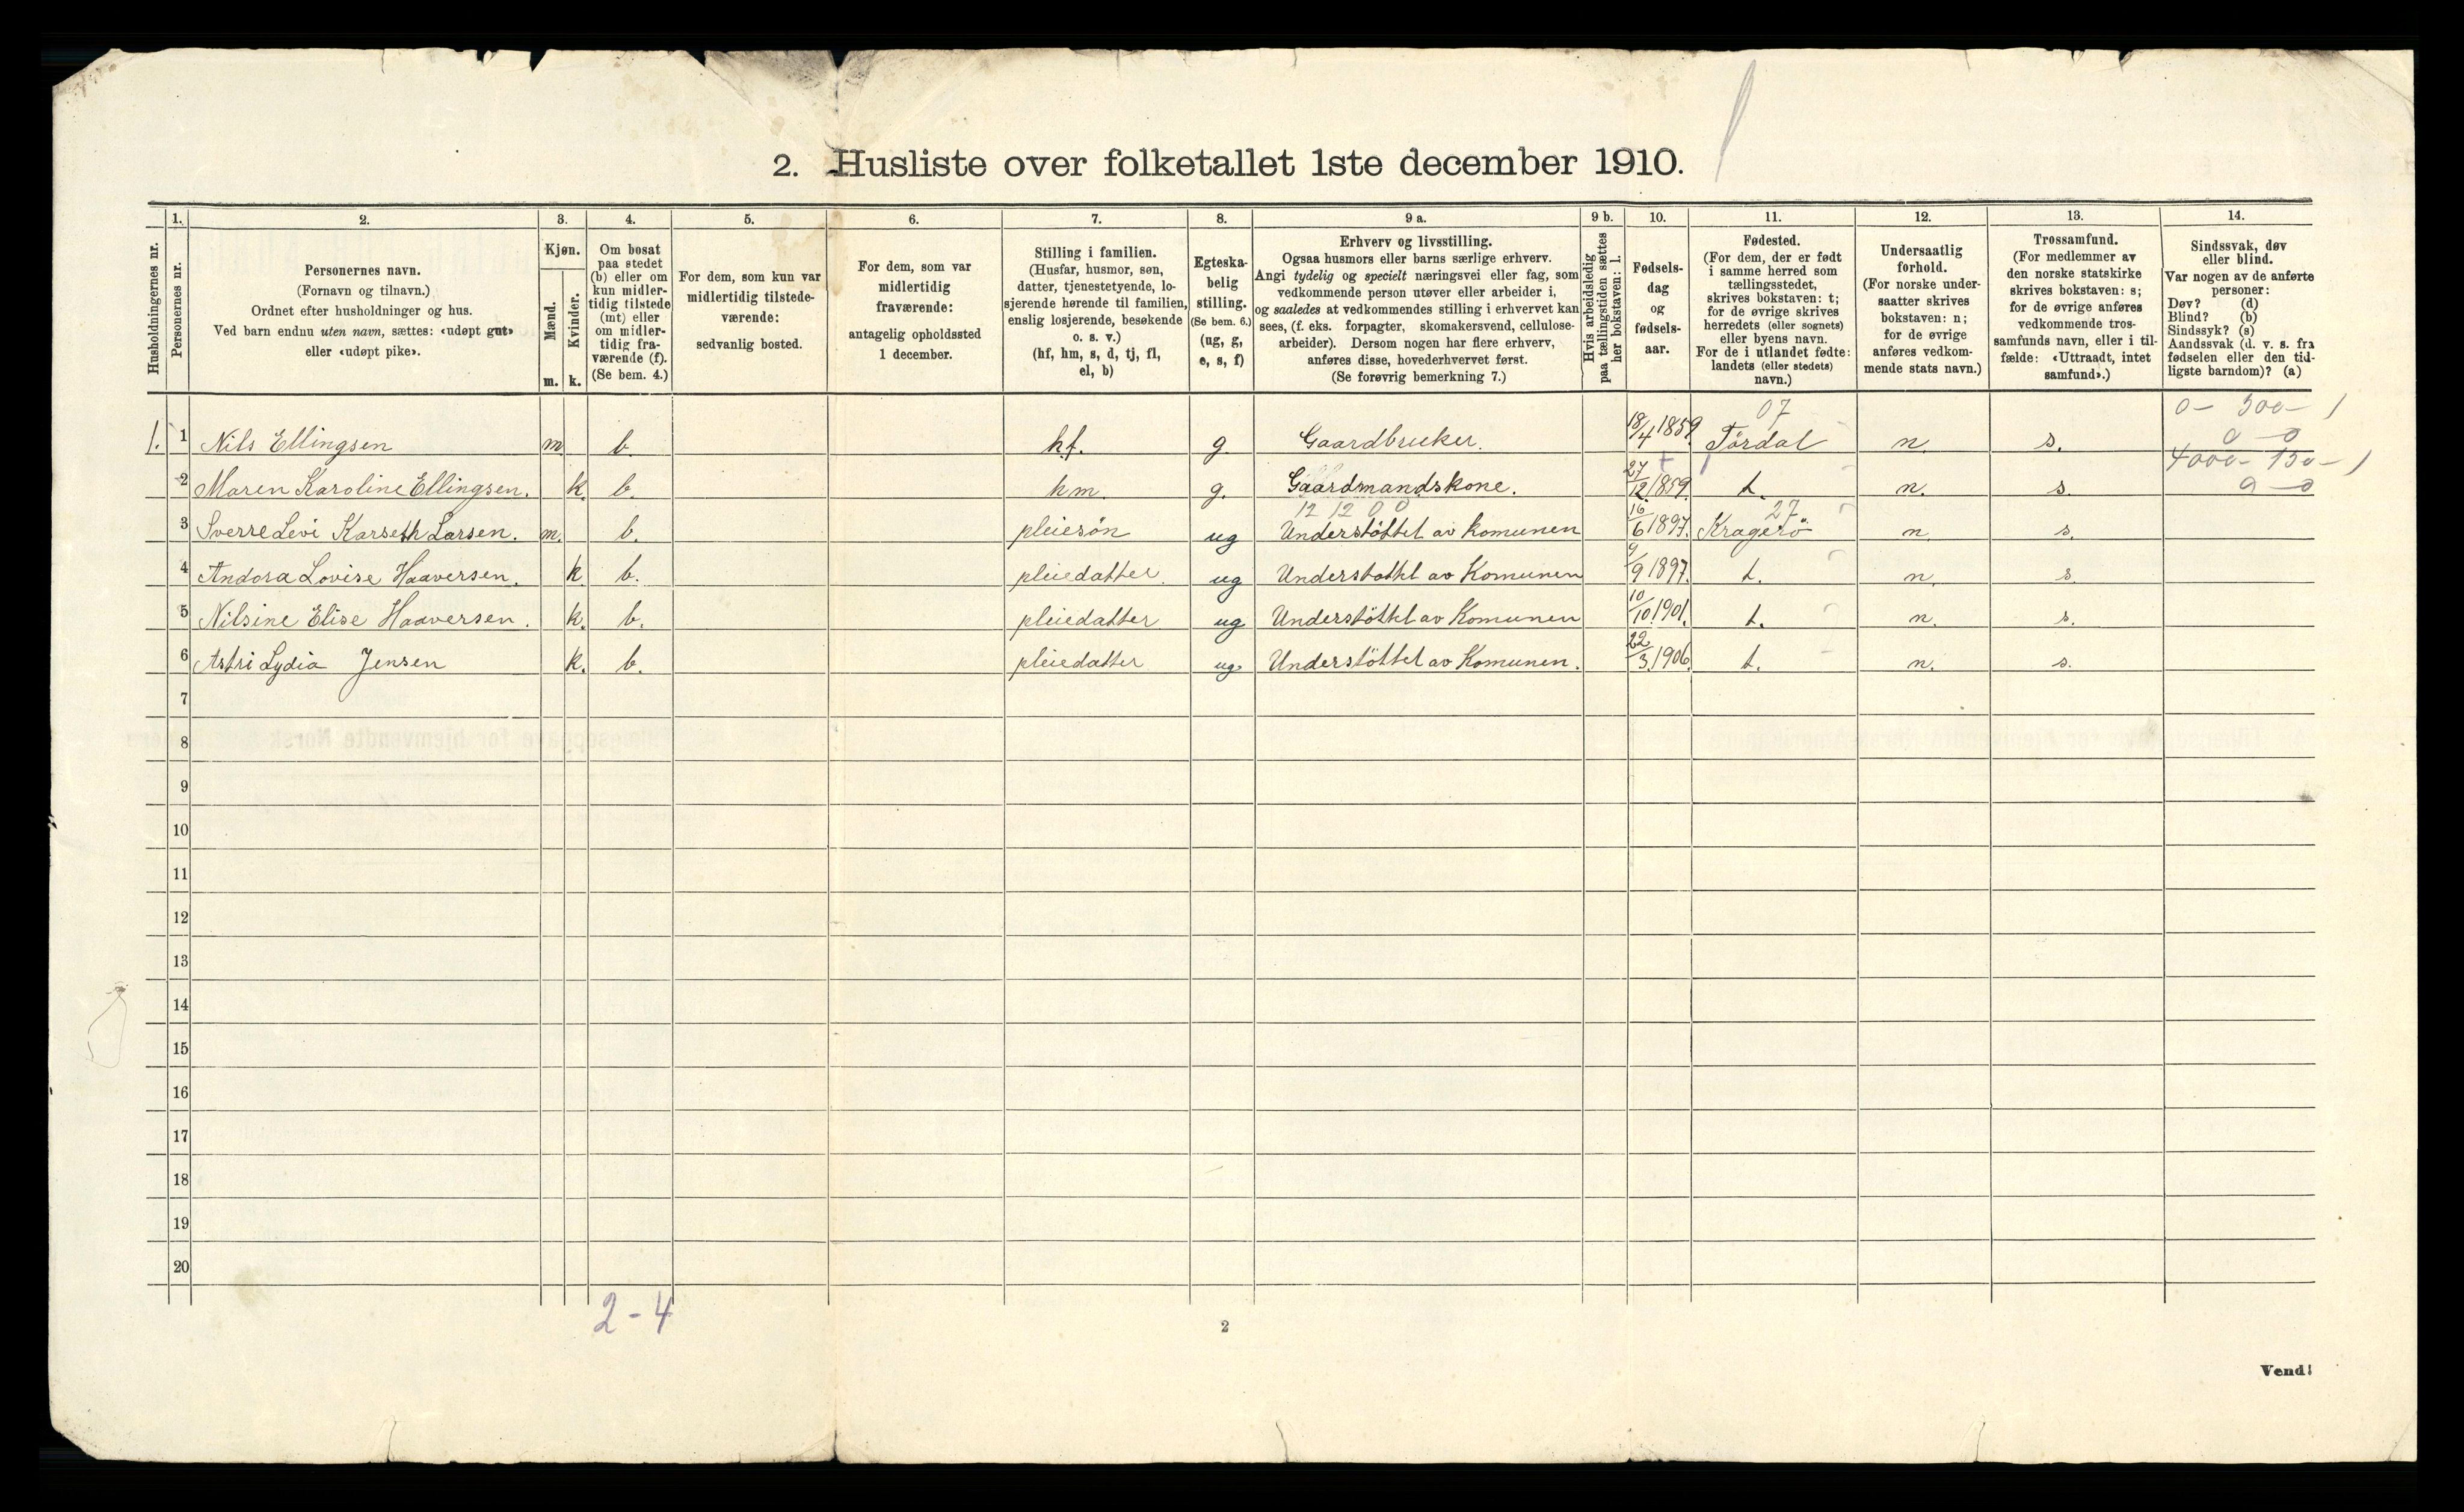 2. Husliste over folketallet 1ste december 1910.
Husholdningernes nr.
1.
Personernes nr.
2.
Personernes navn.
(Fornavn og tilnavn.)
Ordnet efter husholdninger og hus.
Ved barn endnu uten navn, sættes: «udøpt gut»
eller «udøpt pike».
3.
Kjøn.
Mænd.
m.
Kvinder.
k.
4.
Om bosat
paa stedet
(b) eller om
kun midler-
tidig tilstede
(mt) eller
om midler-
tidig fra-
værende (f).
(Se bem. 4.)
5.
For dem, som kun var
midlertidig tilstede-
værende:
sedvanlig bosted.
6.
For dem, som var
midlertidig
fraværende:
antagelig opholdssted
1 december.
7.
Stilling i familien.
(Husfar, husmor, søn,
datter, tjenestetyende, lo-
sjerende hørende til familien,
enslig losjerende, besøkende
o. s. v.)
(hf, hm, s, d, tj, fl,
el, b)
8.
Egteska-
belig
stilling.
(Se bem. 6.)
(ug, g,
e, s, f)
9 a.
Erhverv og livsstilling.
Ogsaa husmors eller barns særlige erhverv.
Angi tydelig og specielt næringsvei eller fag, som
vedkommende person utøver eller arbeider i,
og saaledes at vedkommendes stilling i erhvervet kan
sees, (f. eks. forpagter, skomakersvend, cellulose-
arbeider). Dersom nogen har flere erhverv,
anføres disse, hovederhvervet først.
(Se forøvrig bemerkning 7.)
9 b.
Hvis arbeidsledig
paa tællingstiden sættes
her bokstaven: l.
10.
Fødsels-
dag
og
fødsels-
aar.
11.
Fødested.
(For dem, der er født
i samme herred som
tællingsstedet,
skrives bokstaven: t;
for de øvrige skrives
herredets (eller sognets)
eller byens navn.
For de i utlandet fødte:
landets (eller stedets)
navn.)
12.
Undersaatlig
forhold.
(For norske under-
saatter skrives
bokstaven: n;
for de øvrige
anføres vedkom-
mende stats navn.)
13.
Trossamfund.
(For medlemmer av
den norske statskirke
skrives bokstaven: s;
for de øvrige anføres
vedkommende tros-
samfunds navn, eller i til-
fælde: «Uttraadt, intet
samfund».)
14.
Sindssvak, døv
eller blind.
Var nogen av de anførte
personer:
Døv? (d)
Blind? (b)
Sindssyk? (s)
Aandssvak (d. v. s. fra
fødselen eller den tid-
ligste barndom)? (a)
07 0- 300- 1
1. 1 Nils Ellingsen m b. hf. g. Gaardbruker. 18/4 1859 Tördal n. s. 0-0
4000- 150- 1
2 Maren Karoline Ellingsen. k. b. hm. g. Gaardmandskone. 27/12 1859. t. n. s. 0-0
12 12 0 0 27
3 Sverre Levi Karseth Larsen. m. b. pleiesön ug Understöttet av komunen 16/6 1897. Kragerö n s.
4 Andora Lovise Haaversen. k b. pleiedatter. ug Understottet av Komunen 9/9 1897. t. n. s.
5 Nilsine Elise Haaversen. k. b. pleiedatter ug Understöttet av Komunen 10/10 1901. t. n. s.
6 Astri Lydia Jensen k. b. pleiedatter ug. Understöttet av Komunen. 22/3 1906. t. n. s.
7
8
9
10
11
12
13
14
15
16
17
18
19
20
2-4
2
Vend!